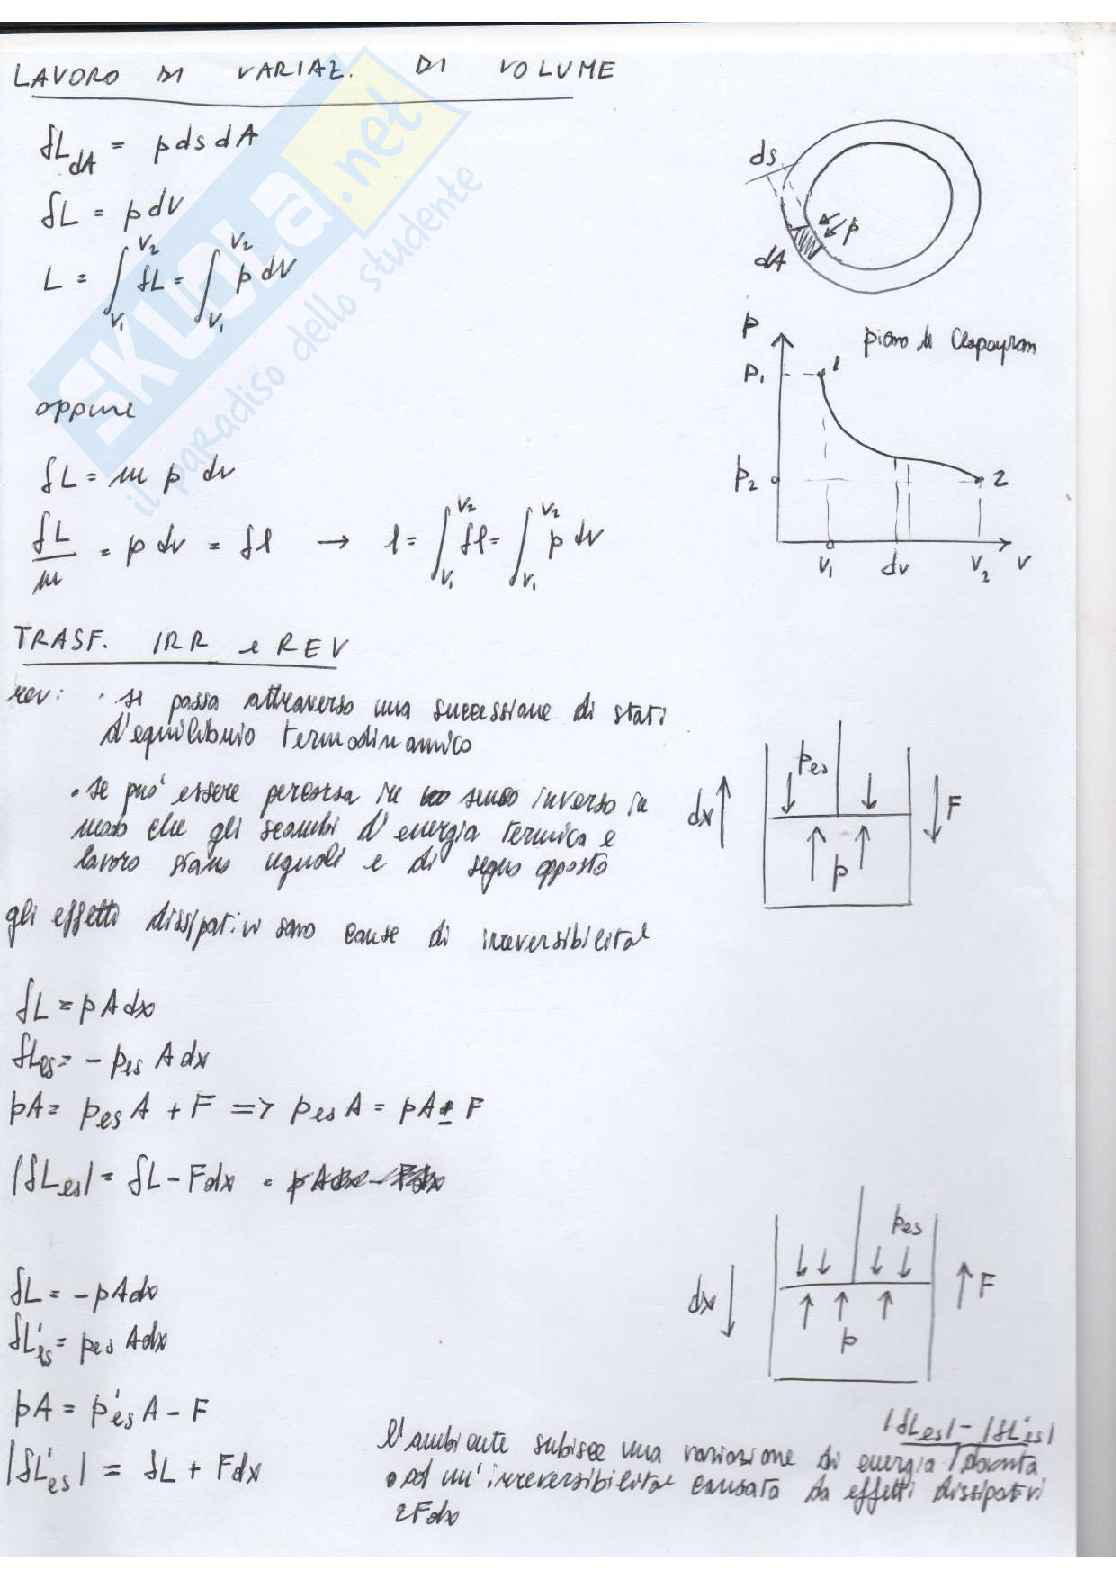 LAVORO DI VARIAZ. DI VOLUME
δL_dA = p ds dA
δL = p dV
L = ∫_{V₁}^{V₂} δL = ∫_{V₁}^{V₂} p dV
oppure
δL = m p dv
δL/m = p dv = δl → l = ∫_{v₁}^{v₂} δl = ∫_{v₁}^{v₂} p dv
ds
p
dA
p
piano di Clapayron
p₁
1
p₂
2
v₁
dv
v₂
v
TRASF. IRR e REV
rev: · si passa attraverso una successione di stati
d'equilibrio termodinamico
· se può essere percorsa in senso inverso in
modo che gli scambi d'energia termica e
lavoro siano uguali e di segno opposto
gli effetti dissipativi sono cause di irreversibilità
dx
p_es
F
p
δL = p A dx
δL_es = - p_es A dx
pA = p_es A + F => p_es A = pA - F
|δL_es| = δL - Fdx =
δL = - pAdx
δL'_es = p_es Adx
pA = p'_es A - F
|δL'_es| = δL + Fdx
dx
p_es
F
p
|δL_es| - |δL'_es|
l'ambiente subisce una variazione di energia dovuta
ad un'irreversibilità causata da effetti dissipativi
2Fdx
SKUOLA.net
il paradiso dello studente